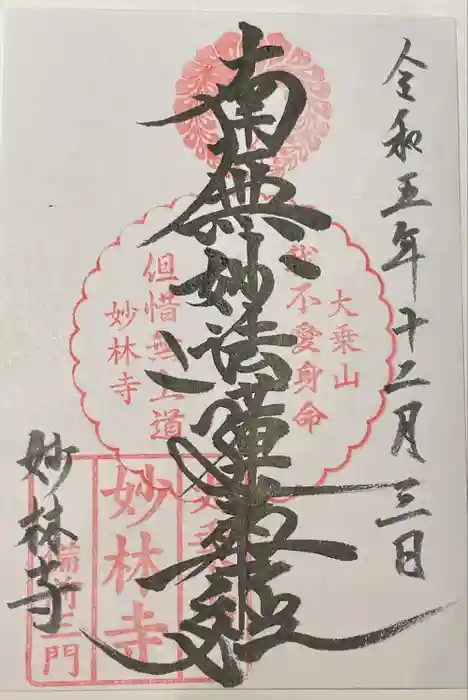 令和五年十二月三日
南無妙法蓮華経
妙林寺
大乗山
我不愛身命
但惜無上道
妙林寺
妙林寺
門